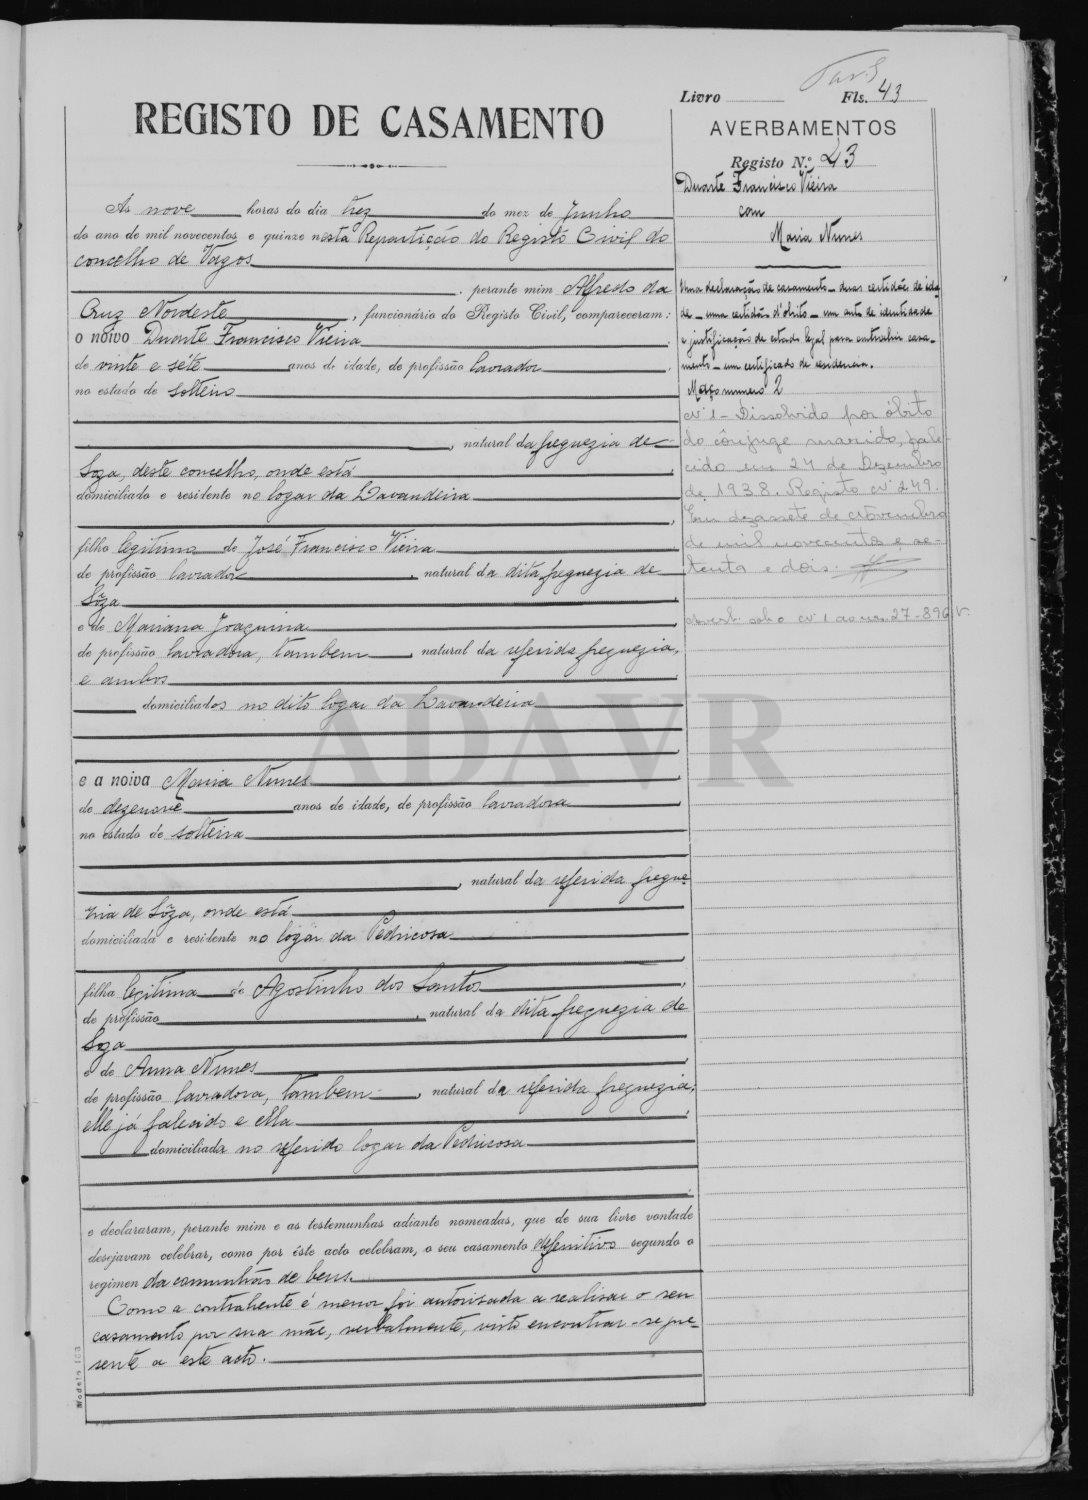 Livro Fls. 43
REGISTO DE CASAMENTO
AVERBAMENTOS
Registo N.º 43
Duarte Francisco Vieira
com
Maria Nunes
Uma declaração de casamento - duas certidões de ida-
de - uma certidão d'óbito - um auto de identidade
e justificação de estado legal para contrahir casa-
mento - um certificado de residencia.
Maço numero 2
Nº 1 - Dissolvido por óbito
do cônjuge marido, fale-
cido em 24 de Dezembro
de 1938. Registo nº 249.
Em dezassete de Novembro
de mil novecentos e se-
tenta e dois.
sob o nº 1
As nove horas do dia trez do mez de Junho
do ano de mil novecentos e quinze nesta Repartição do Registo Civil do
concelho de Vagos
perante mim Alfredo da
Cruz Nordeste, funcionário do Registo Civil, compareceram:
o noivo Duarte Francisco Vieira
de vinte e séte anos de idade, de profissão lavrador
no estado de solteiro
, natural da freguezia de
Soza, deste concelho, onde está
domiciliado e residente no logar da Lavandeira
filho legitimo de José Francisco Vieira
de profissão lavrador, natural da dita freguezia de
Sôza
e de Mariana Joaquina
de profissão lavradora, tambem natural da referida freguezia,
e ambos
domiciliados no dito logar da Lavandeira
e a noiva Maria Nunes
de dezenove anos de idade, de profissão lavradora
no estado de solteira
, natural da referida fregue-
zia de Sôza, onde está
domiciliada e residente no logar da Pedricosa
filha legitima de Agostinho dos Santos
de profissão, natural da dita freguezia de
Soza
e de Anna Nunes
de profissão lavradora, tambem, natural da referida freguezia,
elle já falecido e ella
domiciliada no referido logar da Pedricosa
e declararam, perante mim e as testemunhas adiante nomeadas, que de sua livre vontade
desejavam celebrar, como por êste acto celebram, o seu casamento definitivo segundo o
regimen da comunhão de bens.
Como a contrahente é menor foi autorisada a realisar o seu
casamento por sua mãe, verbalmente, visto encontrar-se pre-
sente a este acto.
Modelo 103
ADAVR